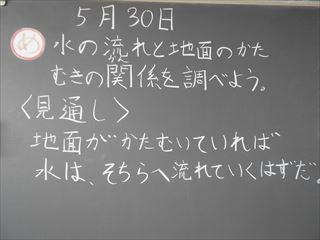 5月30日
め 水の流れと地面のかた
むきの関係を調べよう。
〈見通し〉
地面がかたむいていれば
水は、そちらへ流れていくはずだ。